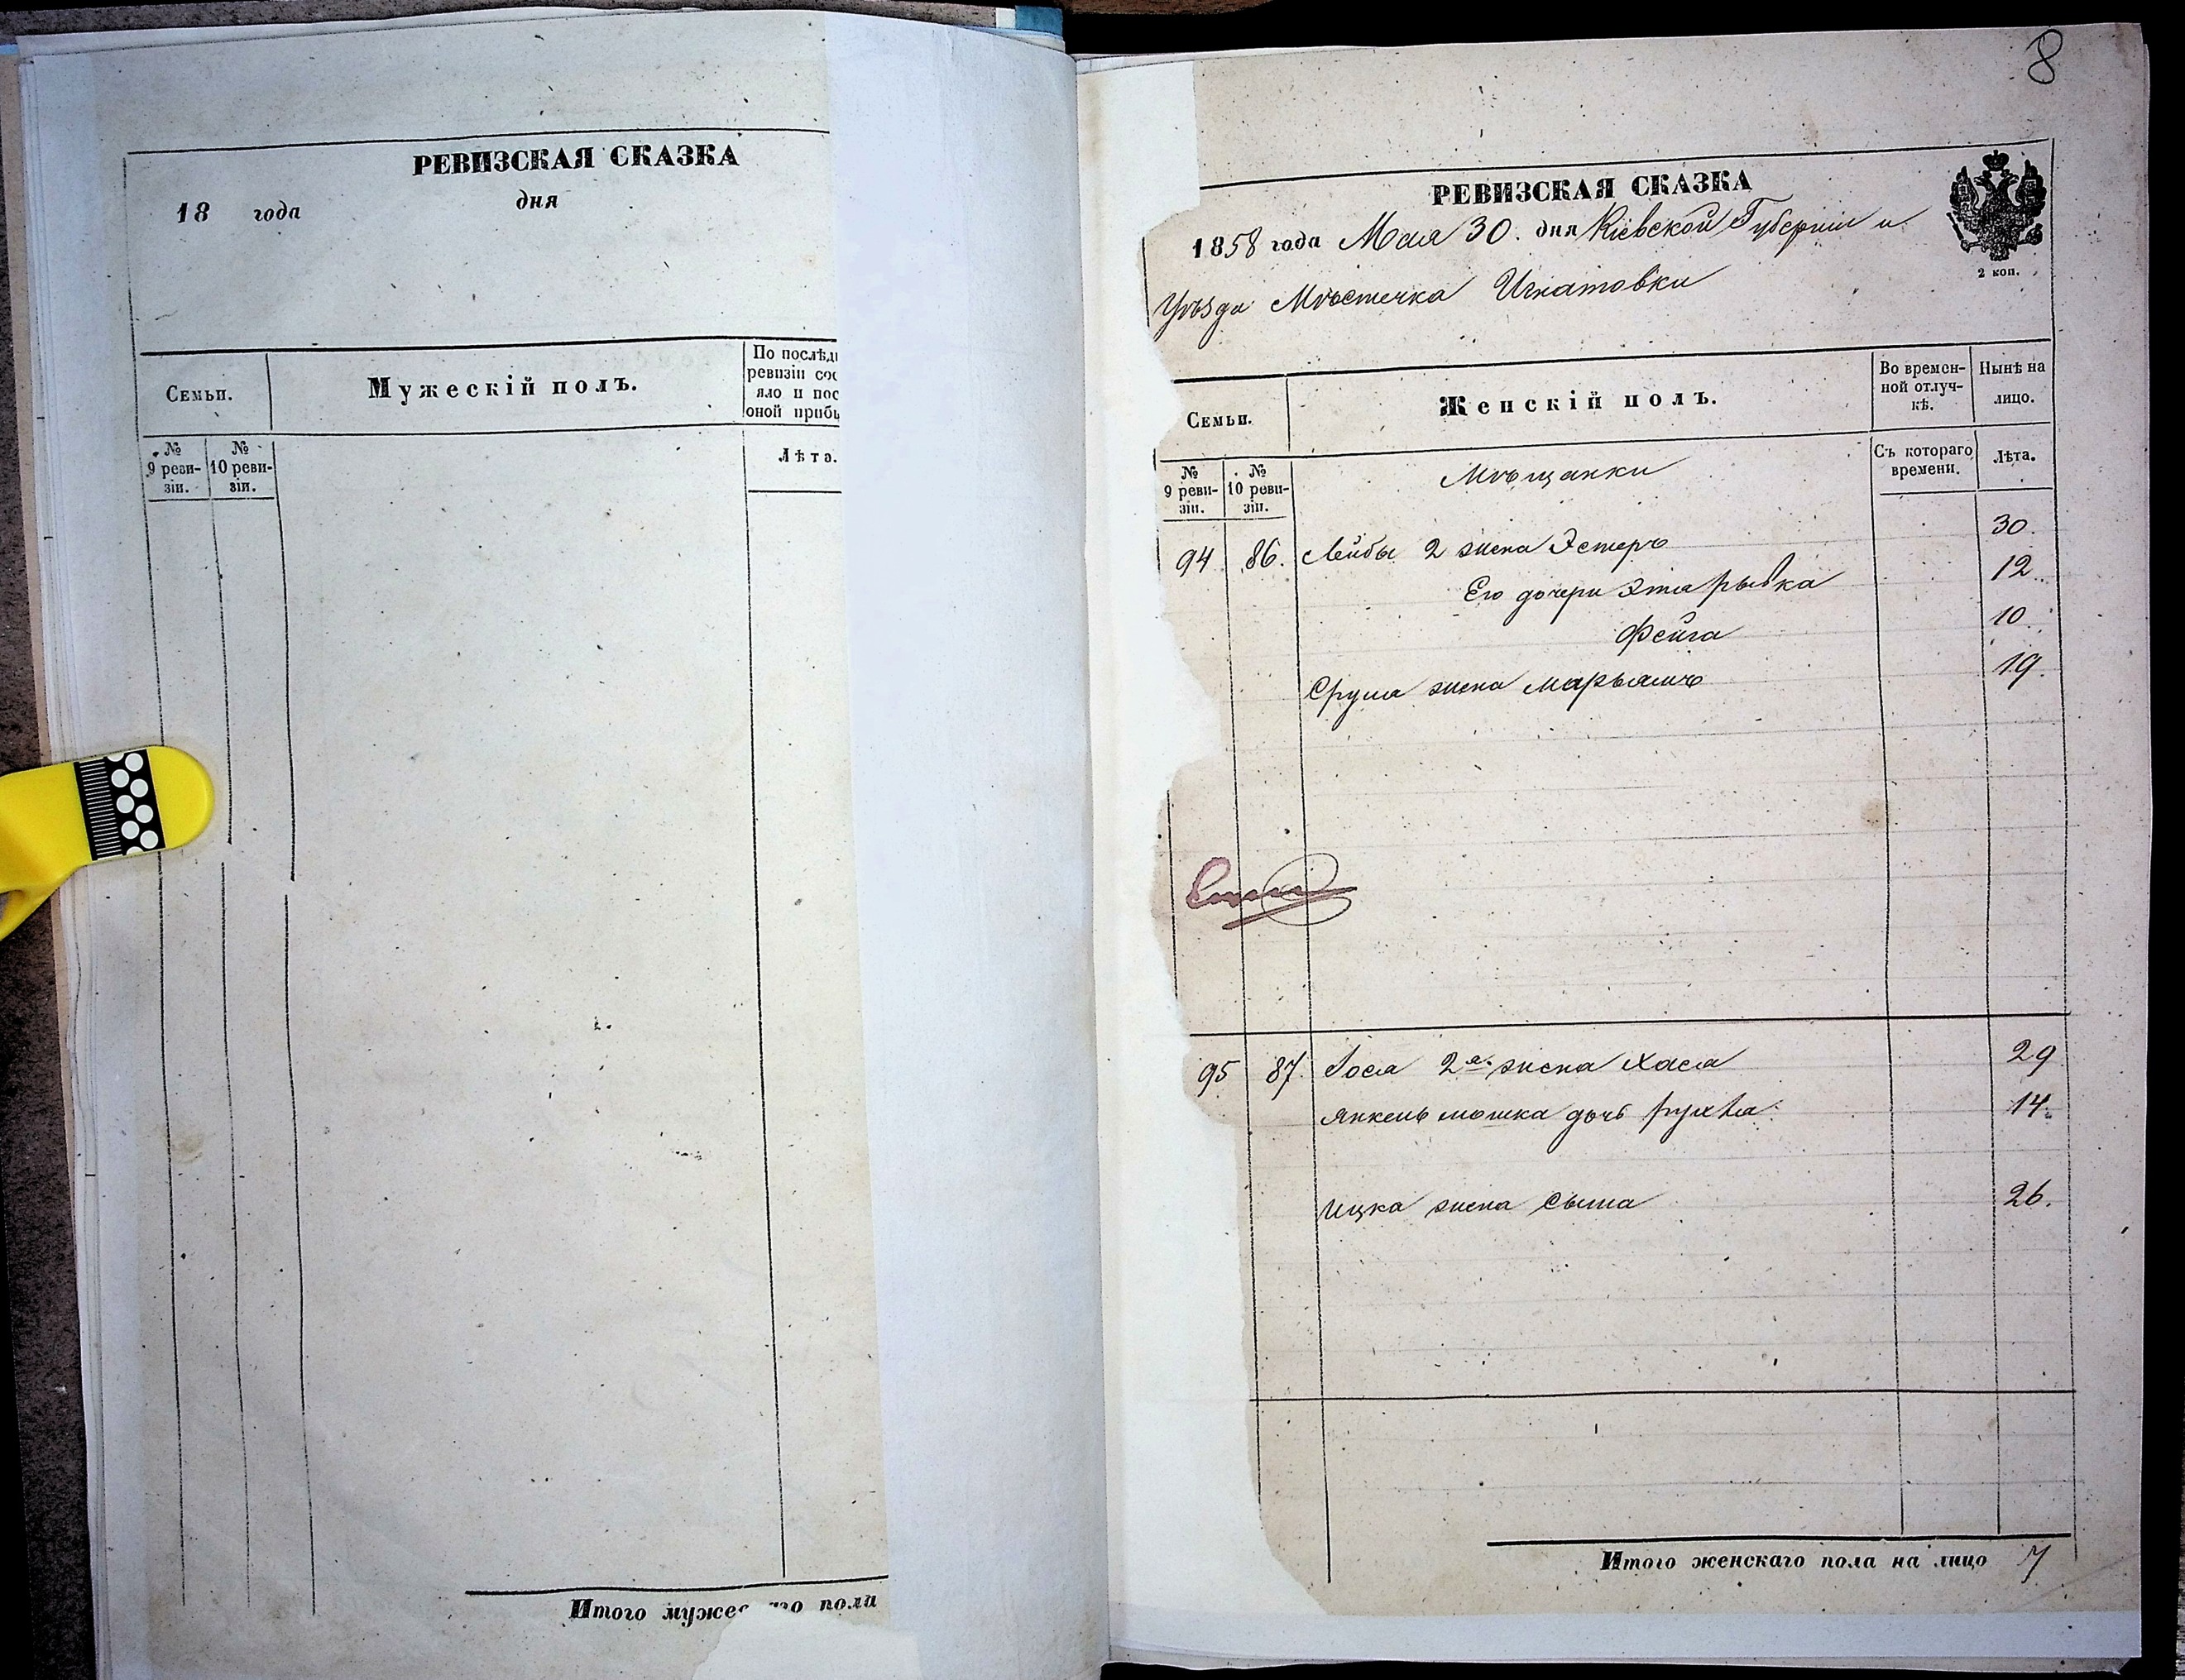 РЕВИЗСКАЯ СКАЗКА
18 года дня
Семьи.
Мужескій полъ.
По послѣд
ревизіи сос
яло и пос
оной прибы
№ 9 реви-зіи.
№ 10 реви-зіи.
Лѣта.
Итого мужес го пола
8
РЕВИЗСКАЯ СКАЗКА
1858 года Мая 30. дня Кіевской Губерніи и
Уѣзда Мѣстечка Игнатовки
2 коп.
Семьи.
Женскій полъ.
Во времен-ной отлуч-кѣ.
Нынѣ на лицо.
№ 9 реви-зіи.
№ 10 реви-зіи.
Мѣщанки
Съ котораго времени.
Лѣта.
94 86. Лейбы 2 жена Эстеръ 30.
Его дочери Эта рывка 12
Фейга 10
Сруля жена Марьямъ 19.
95 87. Іося 2я. жена Хася 29
Янкель мошка дочь рухля 14.
Ицка жена Сыма 26.
Итого женскаго пола на лицо 7